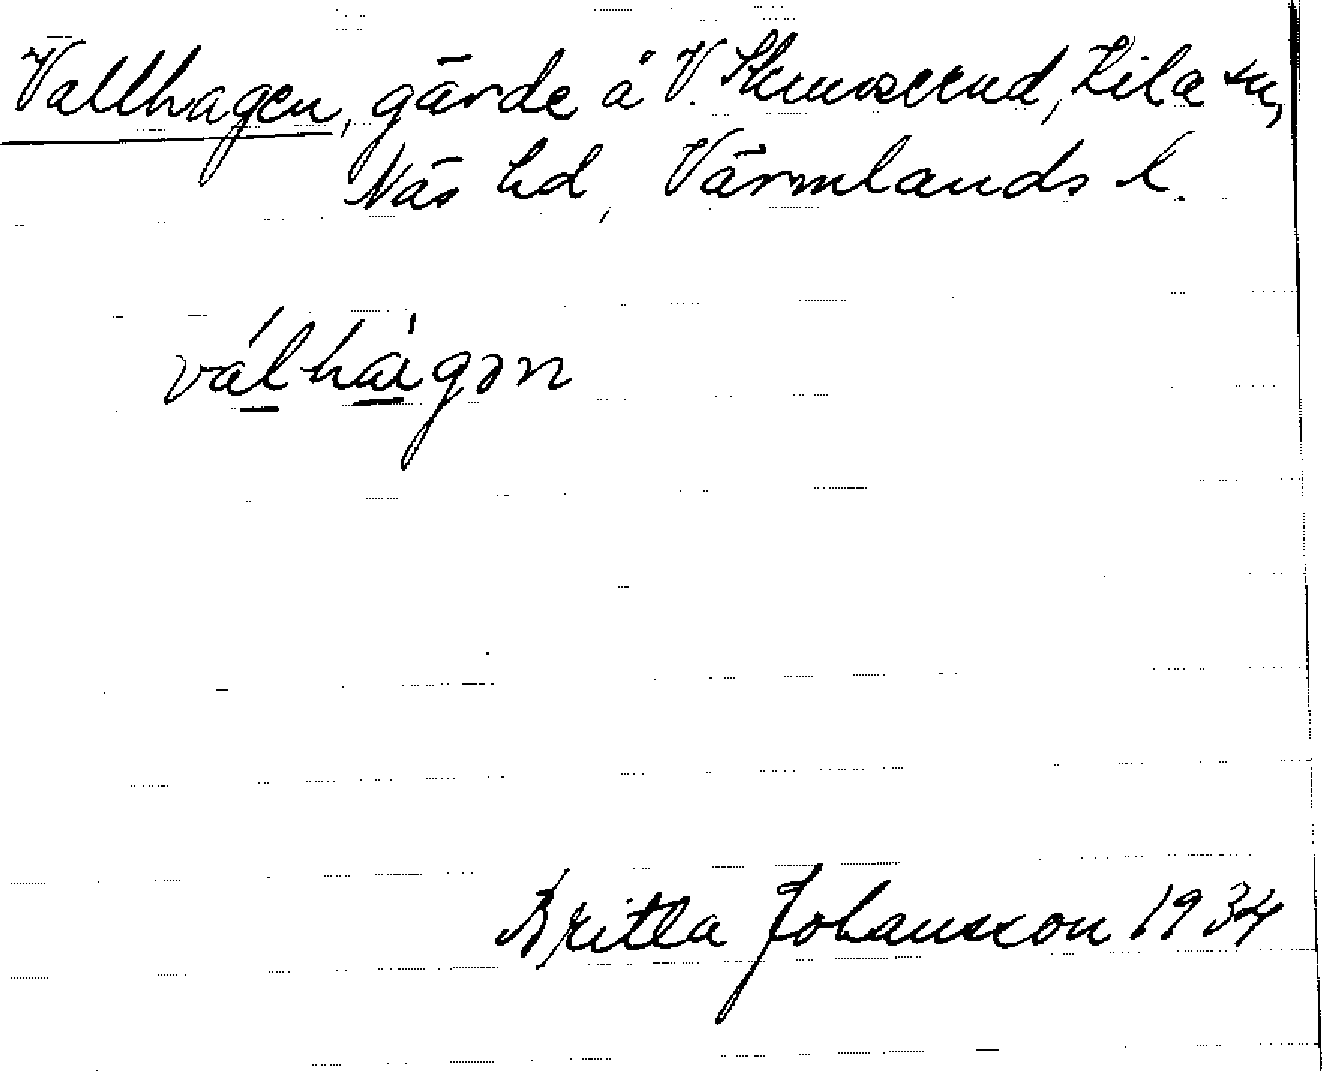 Vallhagen, gärde å V. Skuserud, Kila sn,
Näs hd, Värmlands l.
válhàgən
Britta Johansson 1934